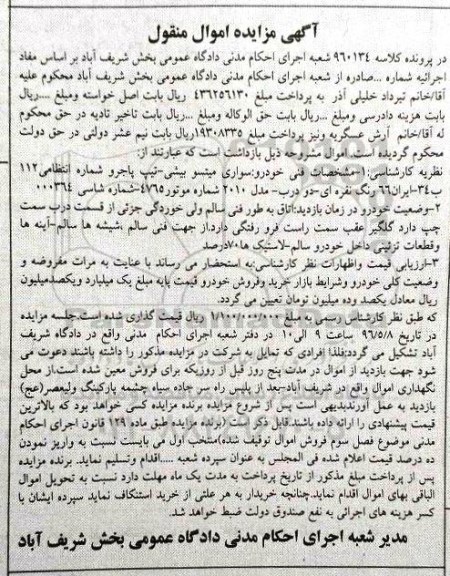 آگهی مزایده اموال منقول
در پرونده کلاسه ۹۶۰۱۳۴ شعبه اجرای احکام مدنی دادگاه عمومی بخش شریف آباد بر اساس مفاد
اجرائیه شماره ...صادره از شعبه اجرای احکام مدنی دادگاه عمومی بخش شریف آباد محکوم علیه
آقا/خانم تیرداد خلیلی آذر به پرداخت مبلغ ۴۳۶۲۵۶۱۳۰ ریال بابت اصل خواسته ومبلغ ....ریال
بابت هزینه دادرسی ومبلغ ...ریال بابت حق الوکاله ومبلغ ...ریال بابت تاخیر تادیه در حق محکوم
له آقا/خانم آرش عسگربه ونیز پرداخت مبلغ ۱۹۳۰۸۳۳۵ریال بابت نیم عشر دولتی در حق دولت
محکوم گردیده است. اموال مشروحه ذیل بازداشت است که عبارتند از:
نظریه کارشناسی:۱-مشخصات فنی خودرو:سواری میتسو بیشی-تیپ پاجرو شماره انتظامی۱۱۲
ب۳۴-ایران۶۶ رنگ نقره ای-دو درب- مدل ۲۰۱۰ شماره موتور۴۷۶۵-شماره شاسی ۰۰۰۳۶۴
۲-وضعیت خودرو در زمان بازدید:اتاق به طور فنی سالم ولی خوردگی جزئی از قسمت درب سمت
چپ دارد گلگیر عقب سمت راست فرو رفتگی دارداز جهت فنی سالم ،شیشه ها سالم-آینه ها
وقطعات تزئینی داخل خودرو سالم-لاستیک ها۷۰درصد
۳-ارزیابی قیمت واظهارات نظر کارشناسی:به استحضار می رساند با عنایت به مرات مفروضه و
وضعیت کلی خودرو وشرایط بازار خرید وفروش خودرو قیمت پایه مبلغ یک میلیارد ویکصدمیلیون
ریال معادل یکصد وده میلیون تومان تعیین می گردد.
که طبق نظر کارشناس رسمی به مبلغ ۱/۱۰۰/۰۰۰/۰۰۰ ریال قیمت گذاری شده است.جلسه مزایده
در تاریخ ۹۶/۵/۸ ساعت ۹ الی۱۰ در دفتر شعبه اجرای احکام مدنی واقع در دادگاه شریف
آباد تشکیل می گردد:فلذا افرادی که تمایل به شرکت در مزایده مذکور را داشته باشند دعوت می
شود جهت بازدید از اموال در مدت پنج روز قبل از روزیکه برای فروش معین شده است.از محل
نگهداری اموال واقع در شریف آباد-بعد از پلیس راه سر جاده سیاه چشمه پارکینگ ولیعصر(عج)
بازدید به عمل آورندبدیهی است پس از شروع مزایده برنده مزایده کسی خواهد بود که بالاترین
قیمت پیشنهادی را ارائه داده باشند.قابل ذکر است (برنده مزایده طبق ماده ۱۲۹ قانون اجرای احکام
مدنی موضوع فصل سوم فروش اموال توقیف شده)منتخب اول می بایست نسبت به واریز نمودن
ده درصد قیمت اعلام شده فی المجلس به عنوان سپرده شعبه .....اقدام وتسلیم نماید. برنده مزایده
پس از پرداخت مبلغ مذکور از تاریخ پرداخت به مدت یک ماه مهلت دارد نسبت به تحویل اموال
الباقی بهای اموال اقدام نماید.چنانچه خریدار به هر علتی از خرید استنکاف نماید سپرده ایشان با
کسر هزینه های اجرائی به نفع صندوق دولت ضبط خواهد شد.
مدیر شعبه اجرای احکام مدنی دادگاه عمومی بخش شریف آباد